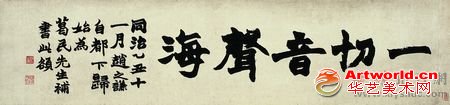 一切音聲海
同治乙丑十
一月趙之謙
自都下歸
始為
葛民先生補
書此額
Artworld.cn
华艺美术网